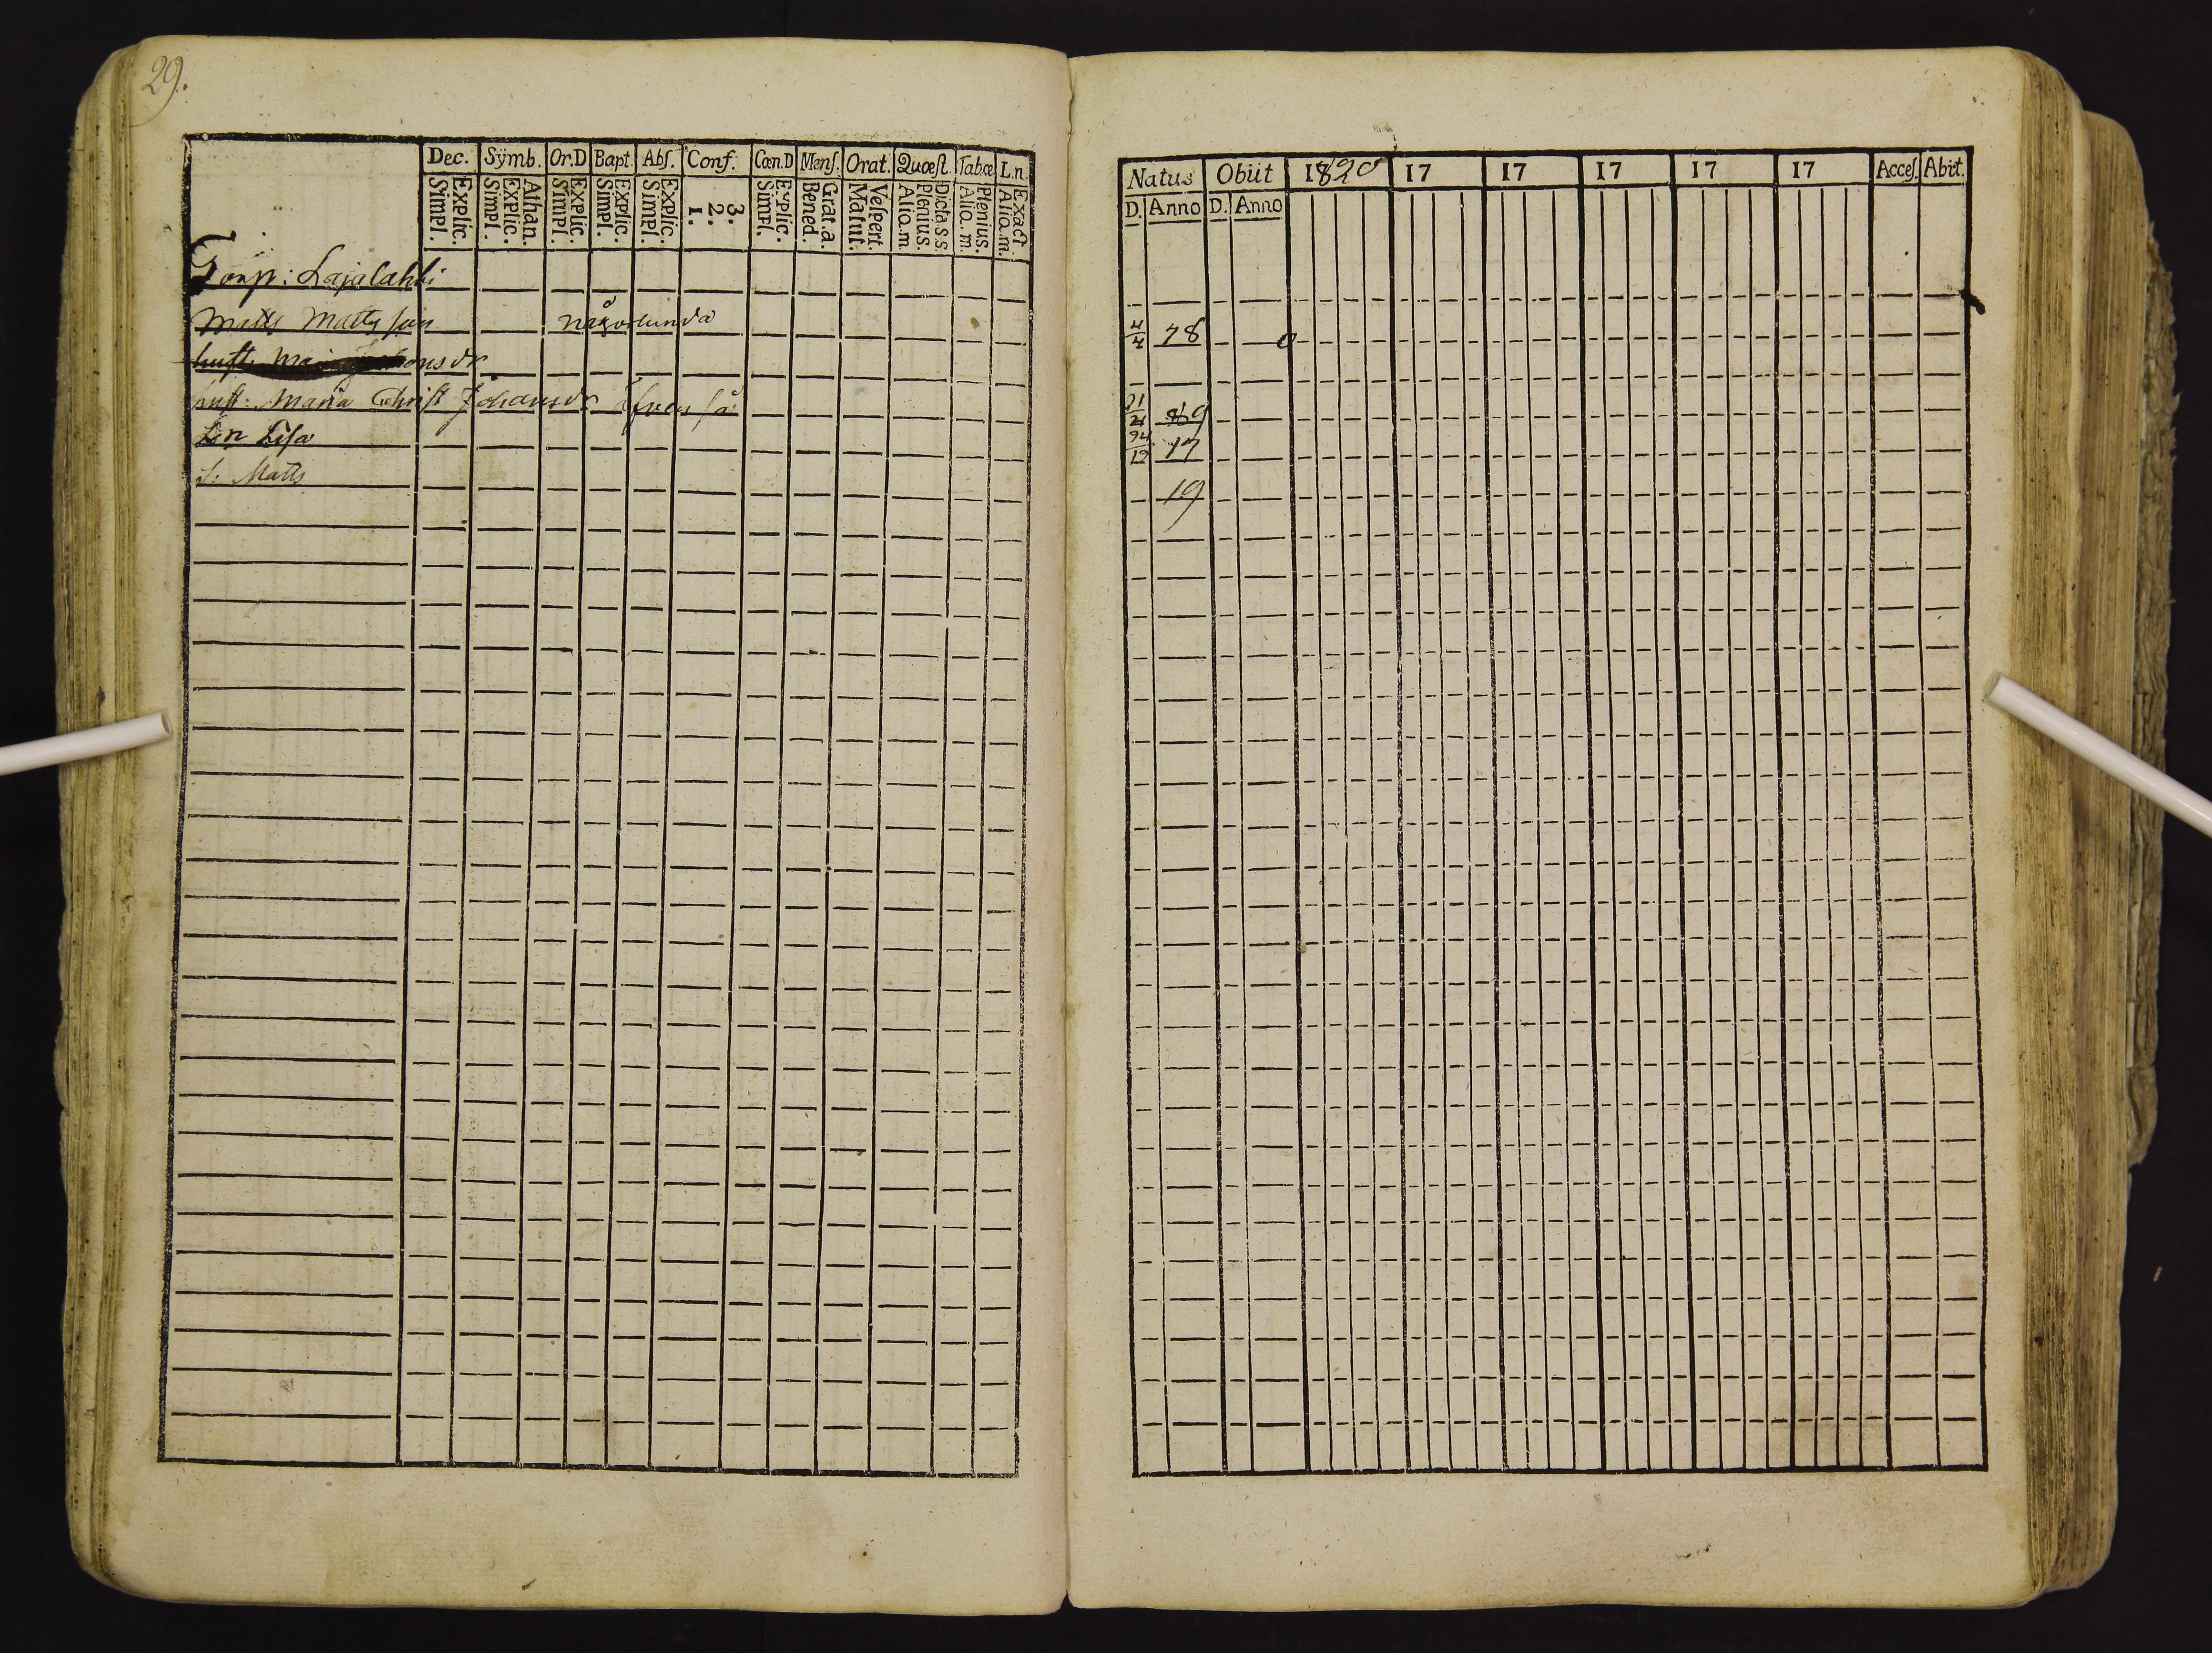 29.
Dec. Sÿmb. Or.D Bapt. Abſ. Conf. Cœn.D Menſ. Orat. Quæſt. Tabœ L.n.
Simpl. Explic. Simpl. Explic. Athan. Simpl. Explic. Simpl. Explic. Simpl. Explic. 1. 2. 3. Simpl. Explic. Bened. Grat.a. Matut. Veſpert. Alio.m. Plenius. Dicta s.s. Aliq.m. Plenius. Aliq.m. Exact
Torp: Lajalahti
Matts Matts son någorlunda
hust. ons dr
hust: Maria Christ Johans dr äfven så
Lisa
S. Matts
Natus Obiit 1820 17 17 17 17 17 Acceſ. Abiit.
D. Anno D. Anno
4/4 78
21/4 89
24/12 17
19